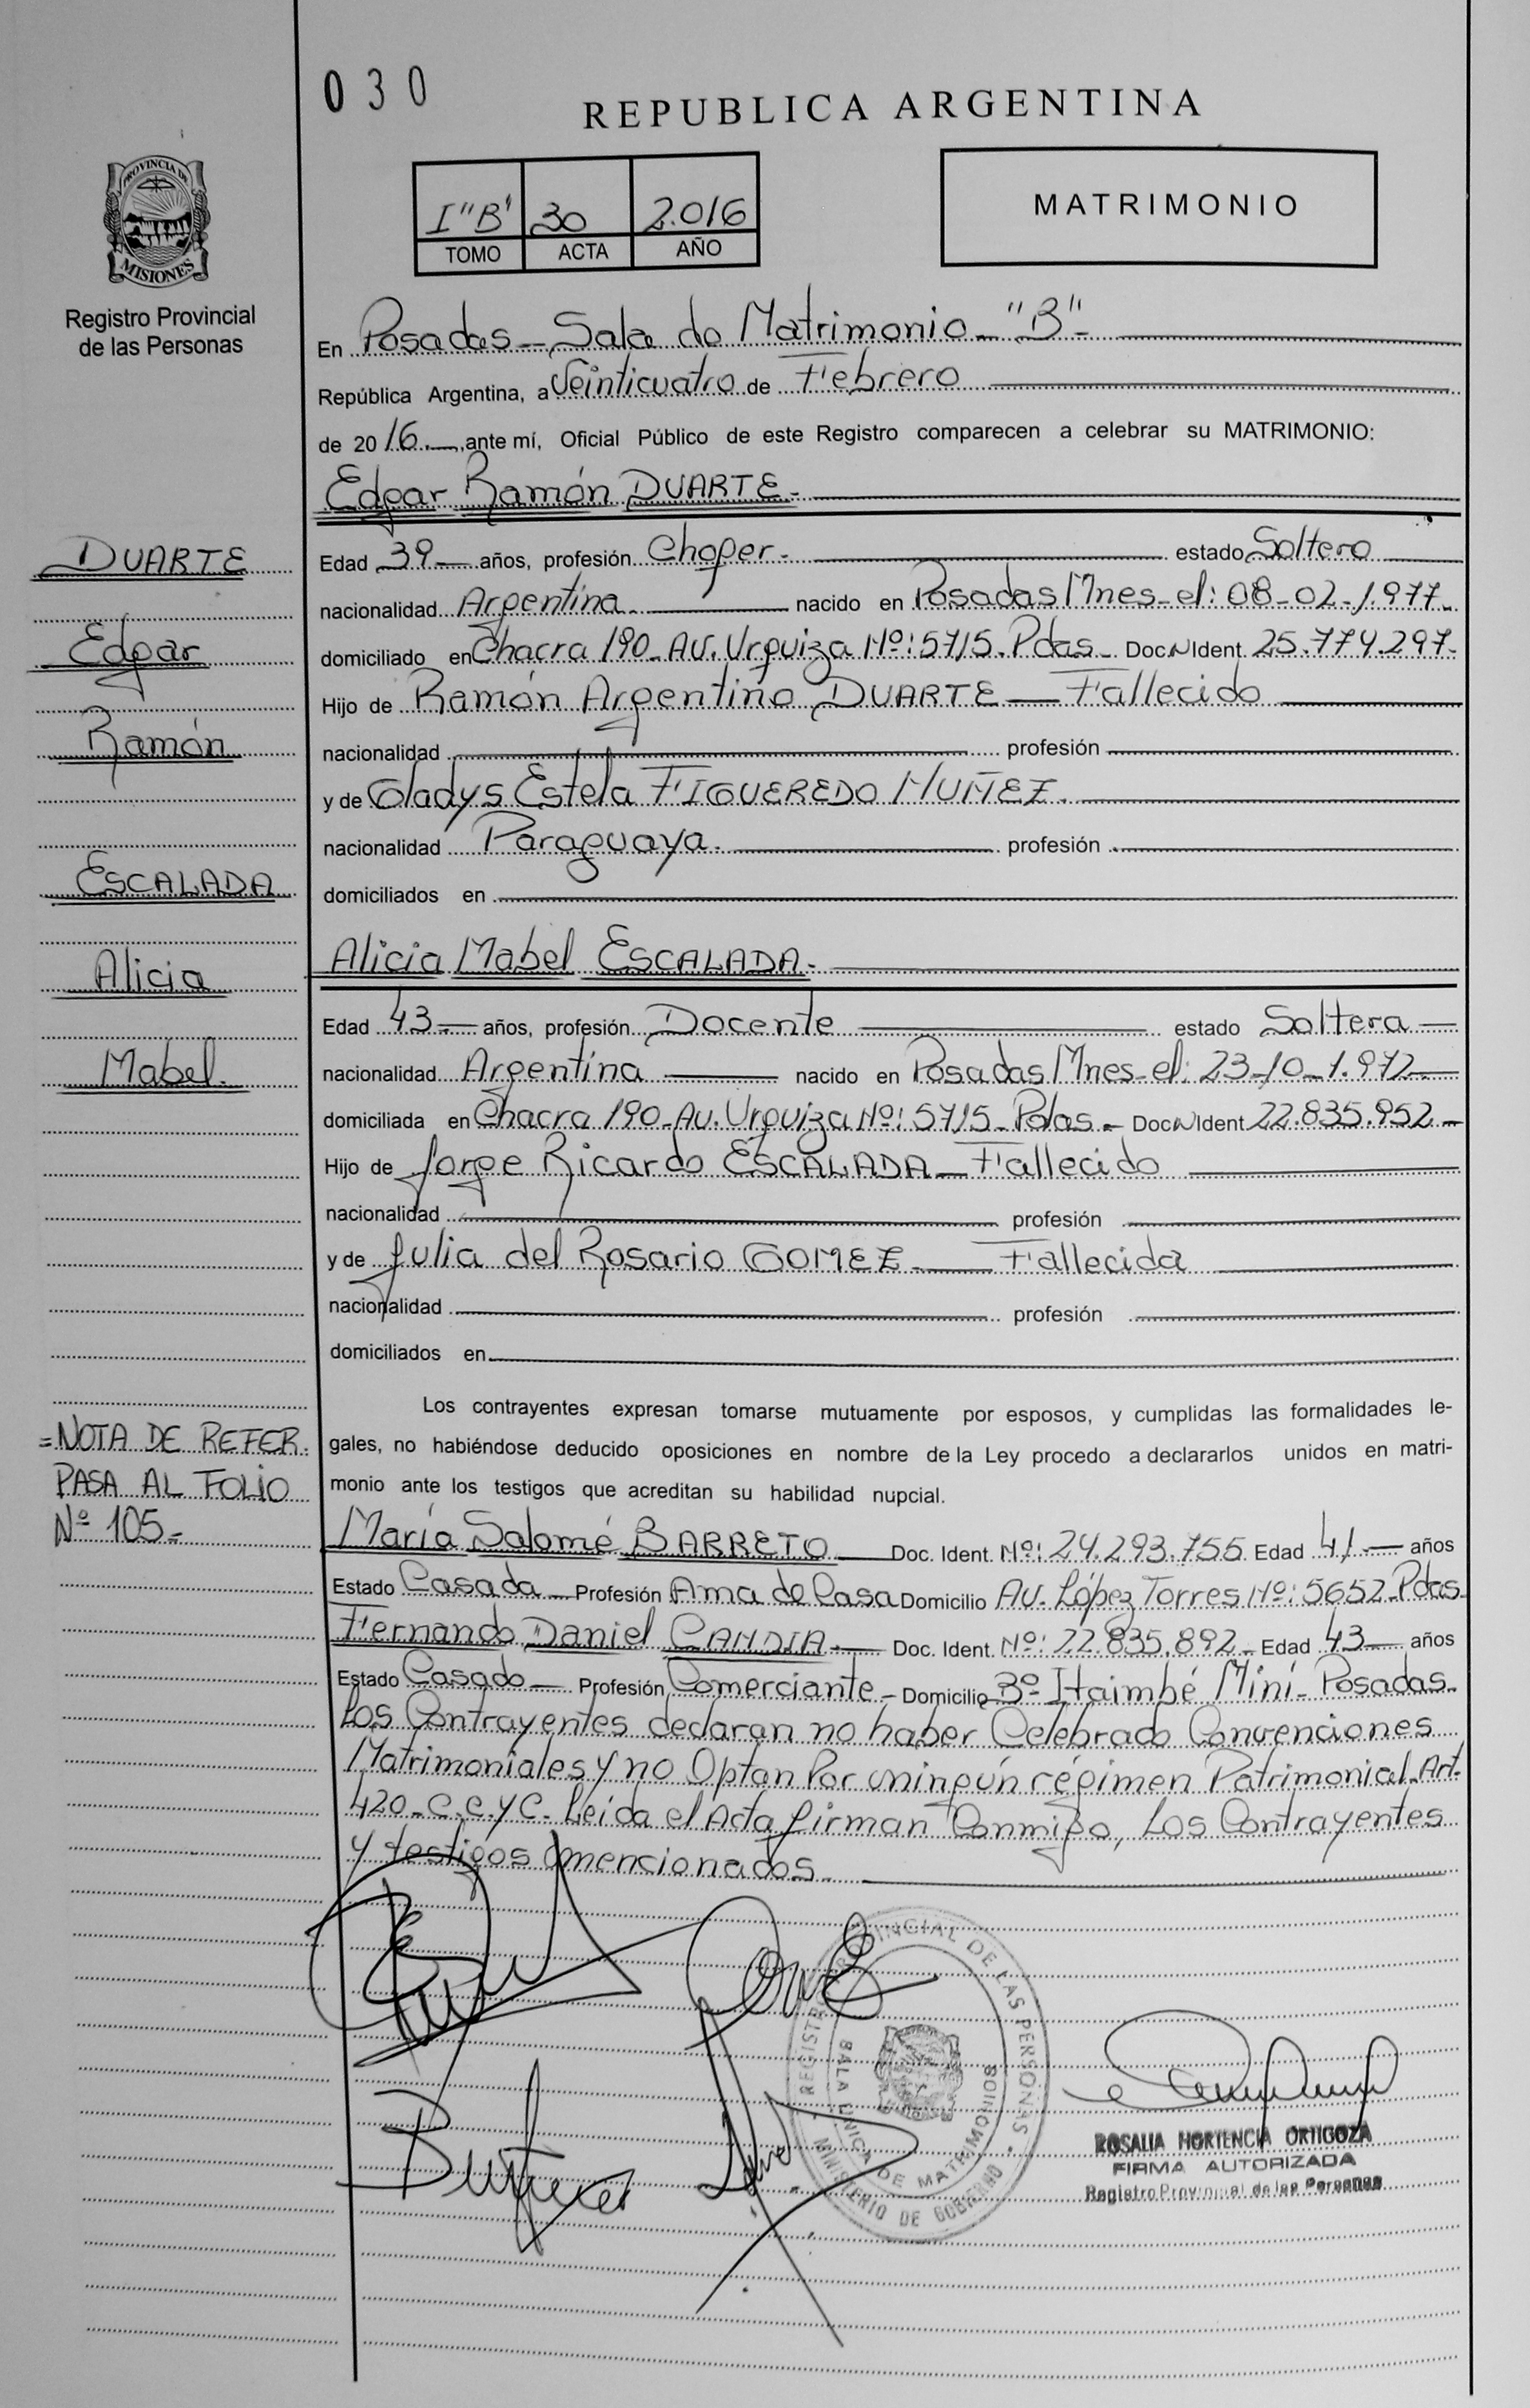 030
REPUBLICA ARGENTINA
I "B" 30 2.016
TOMO ACTA AÑO
MATRIMONIO
PROVINCIA DE
MISIONES
Registro Provincial
de las Personas
En Posadas - Sala de Matrimonio - "B"-
República Argentina, a Veinticuatro de Febrero
de 2016.-, ante mí, Oficial Público de este Registro comparecen a celebrar su MATRIMONIO:
Edgar Ramón DUARTE.-
Edad 39- años, profesión Chofer.- estado Soltero
nacionalidad Argentina nacido en Posadas Mnes- el: 08-02-1.977.-
domiciliado en Chacra 190- AV. Urquiza Nº: 5715. Pdas- Doc. N Ident. 25.774.297.-
Hijo de Ramón Argentino DUARTE — Fallecido
nacionalidad profesión
y de Gladys Estela FIGUEREDO NUÑEZ.
nacionalidad Paraguaya. profesión
domiciliados en
Alicia Mabel ESCALADA.-
Edad 43- años, profesión Docente estado Soltera
nacionalidad Argentina nacido en Posadas Mnes- el: 23-10-1.972
domiciliada en Chacra 190- AV. Urquiza Nº: 5715- Pdas.- Doc. N Ident. 22.835.952.-
Hijo de Jorge Ricardo ESCALADA — Fallecido
nacionalidad profesión
y de Julia del Rosario GOMEZ — Fallecida
nacionalidad profesión
domiciliados en
Los contrayentes expresan tomarse mutuamente por esposos, y cumplidas las formalidades le-
gales, no habiéndose deducido oposiciones en nombre de la Ley procedo a declararlos unidos en matri-
monio ante los testigos que acreditan su habilidad nupcial.
María Salomé BARRETO Doc. Ident. Nº: 24.293.755 Edad 41- años
Estado Casada- Profesión Ama de Casa Domicilio AV. López Torres Nº: 5652- Pdas-
Fernando Daniel CANDIA.- Doc. Ident. Nº: 22.835.892.- Edad 43- años
Estado Casado- Profesión Comerciante- Domicilio Bº Itaimbé Miní- Posadas-
Los Contrayentes declaran no haber Celebrado Convenciones
Matrimoniales y no Optan Por ningún régimen Patrimonial. Art.
420- C.C. y C.- Leída el Acta firman Conmigo, Los Contrayentes
y testigos mencionados.
DUARTE
Edgar
Ramón
ESCALADA
Alicia
Mabel.
=NOTA DE REFER.
PASA AL FOLIO
Nº 105.-
REGISTRO PROVINCIAL DE LAS PERSONAS
SALA UNICA DE MATRIMONIOS
MINISTERIO DE GOBIERNO
ROSALIA HORTENCIA ORTIGOZA
FIRMA AUTORIZADA
Registro Provincial de las Personas